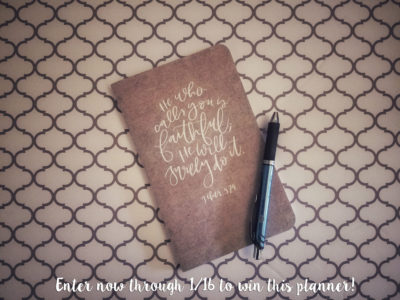 He who
calls you is
faithful;
He will
surely do it.
5:24
Enter now through 1/16 to win this planner!